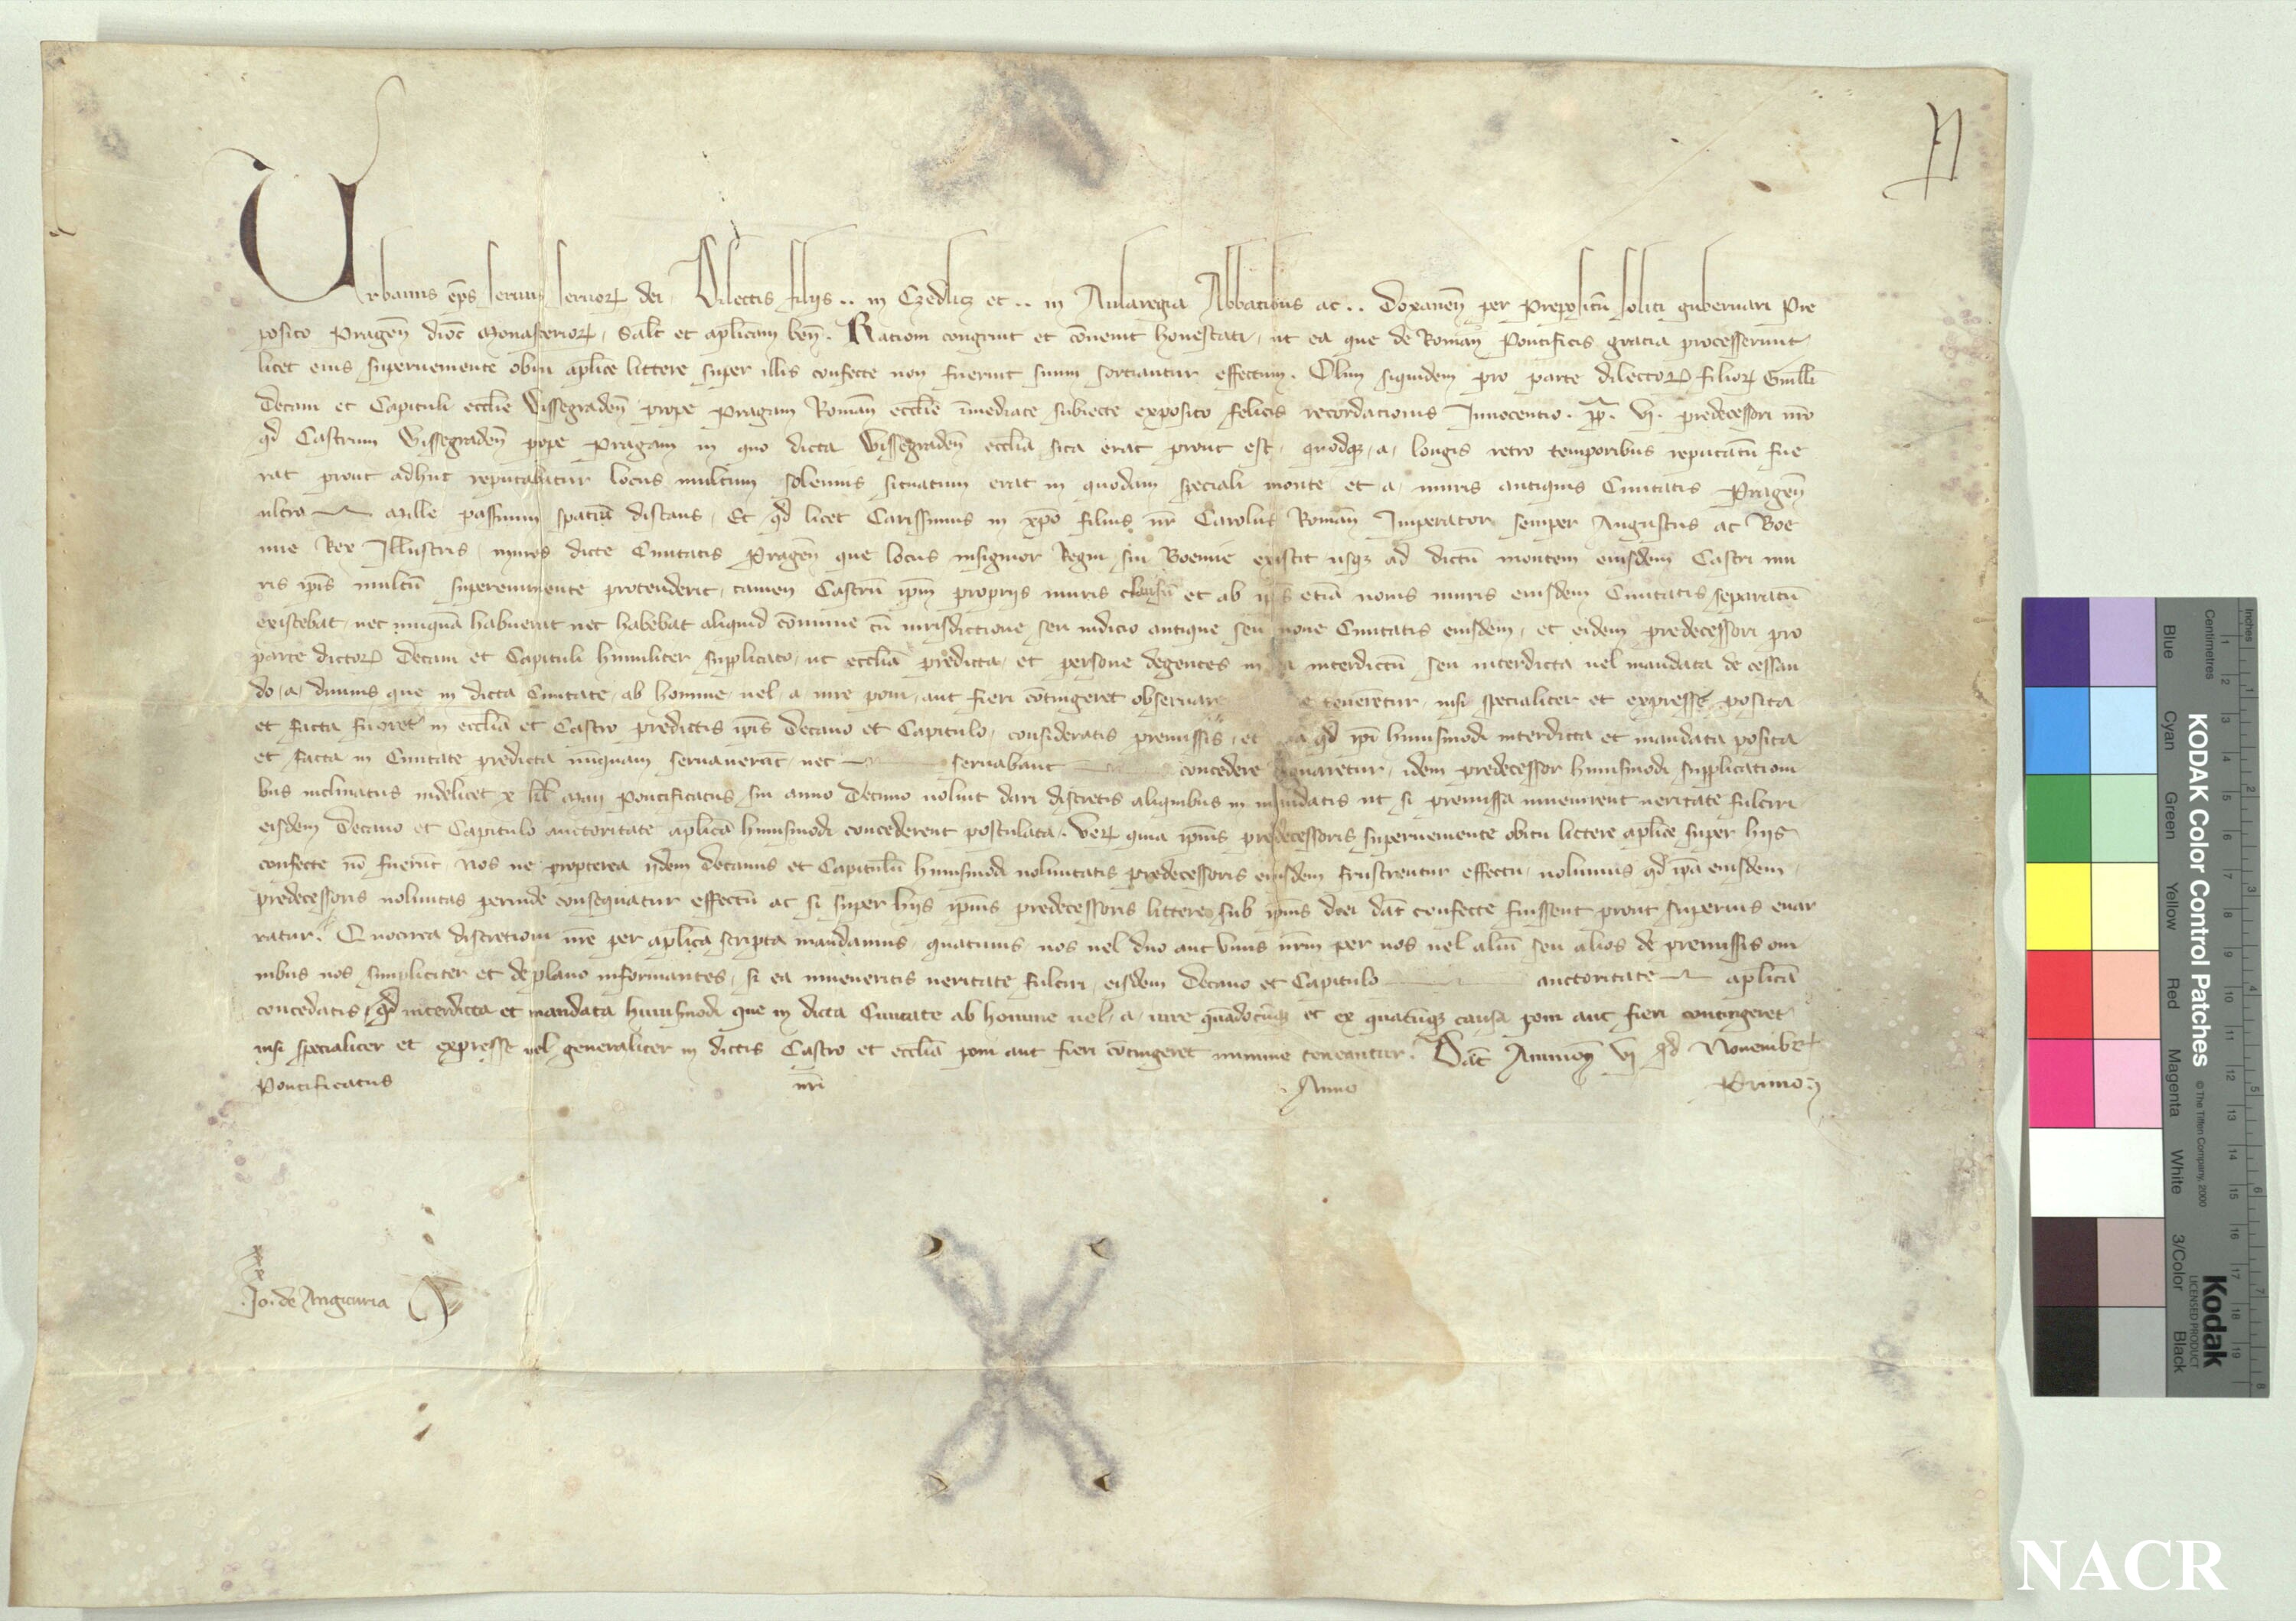 Urbanus ep̄s seruus seruorꝝ dei, Dilectis filijs .. in Czedlicz et .. in Aularegia Abbatibus ac .. Doxaneñ per prepositū soliti gubernari Pre
posito Prageñ dioc̄ Monasteriorꝝ, Salt̄ et aplicam beñ. Rationi congruit et cōuenit honestati, ut ea que de Romañ Pontificis gracia processerunt
licet eius superueniente obitu aplice littere super illis confecte non fuerint suum sorciantur effectum. Olim siquidem pro parte dilectorꝝ filiorꝝ Guill̄i
Decani et Capituli ecclīe Wissegradeñ prope Pragam Romañ ecclīe īmediate subiecte exposito felicis recordationis Innocentio .pp̄. vj. predecessori nr̄o
qd̄ Castrum Wissegradeñ prope Pragam in quo dicta Wissegradeñ ecclīa sita erat prout est, quodqꝫ, a, longis retro temporibus reputatū fue
rat prout adhuc reputabatur locus multum solennis situatum erat in quodam speciali monte et, a, muris antiquis Ciuitatis Prageñ
ultra mille passuum spatiū distans, Et qd̄ licet Carissimus in xp̄o filius nr̄ Carolus Romañ Imperator semper Augustus ac Boe
mie Rex Illustris, muros dicte Ciuitatis Prageñ que locus insignior Regni sui Boemie existit usqꝫ ad dictū montem eiusdem Castri mu
ris ip̄is multū supereminente protenderit, tamen Castrū ip̄m proprijs muris clausū et ab ip̄is etiā nouis muris eiusdem Ciuitatis separatū
existebat, nec unquā habuerat nec habebat aliquid cōmune cū iurisdictione seu iudicio antique seu noue Ciuitatis eiusdem, et eidem predecessori pro
parte dictorꝝ Decani et Capituli humiliter supplicato, ut ecclīa predicta, et persone degentes in ea interdictū seu interdicta uel mandata de cessan
do, a, diuinis que in dicta Ciuitate, ab homine, uel, a, iure poni, aut fieri cōtingeret obseruare tenerētur, nisi specialiter et expresse posita
et facta fuorēt in ecclīa et Castro predictis ip̄is Decano et Capitulo, consideratis premissis, et qd̄ ip̄i huiusmodi interdicta et mandata posita
et facta in Ciuitate predicta nūquam seruauerāt, nec seruabant concedere dignaretur, idem predecessor huiusmodi supplicationi
bus inclinatus uidelicet x kl̄ Maij Pontificatus sui anno Decimo uoluit dari discretis aliquibus in mandatis ut si premissa inuenirent ueritate fulciri
eisdem Decano et Capitulo auctoritate aplica huiusmodi concederent postulata. Verꝝ quia ip̄ius predecessoris superueniente obitu littere aplice super hijs
confecte nō fuerūt Nos ne propterea ijdem Decanus et Capitulū huiusmodi uoluntatis predecessoris eiusdem frustrentur effectu, uolumus qd̄ ip̄a eiusdem
predecessoris uoluntas perinde consequatur effectū ac si super hijs ip̄ius predecessoris littere sub ip̄ius diei dat̄ confecte fuissent prout superius enar
ratur. Quocirca discretioni ur̄e per aplica scripta mandamus, quatinus, uos uel duo aut Vnus ur̄m per uos uel aliū seu alios de premissis om
nibus uos simpliciter et de plano informantes, si ea inueneritis ueritate fulciri, eisdem Decano et Capitulo auctoritate aplica
concedatis, qd̄ interdicta et mandata huiusmodi que in dicta Ciuitate ab homine uel, a, iure quādocūqꝫ et ex quacūqꝫ causa poni aut fieri contingeret
nisi specialiter et expresse uel generaliter in dictis Castro et ecclīa poni aut fieri cōtingeret minime teneantur. Dat̄ Auinioñ vj Id̄ Nouembrꝭ
Pontificatus nr̄i Anno Primo
Jo. de Angicuria
KODAK Color Control Patches
© The Tiffen Company, 2000
Kodak
LICENSED PRODUCT
Inches
Centimetres
Blue Cyan Green Yellow Red Magenta White 3/Color Black
NACR